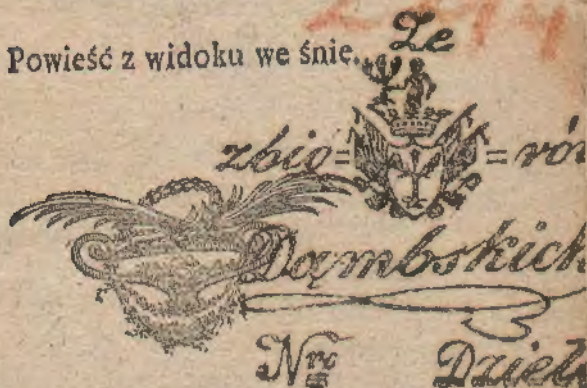 Powieść z widoku we śnie.
Ze
zbio= =rów
Dąmbskich
Nro Dzieł